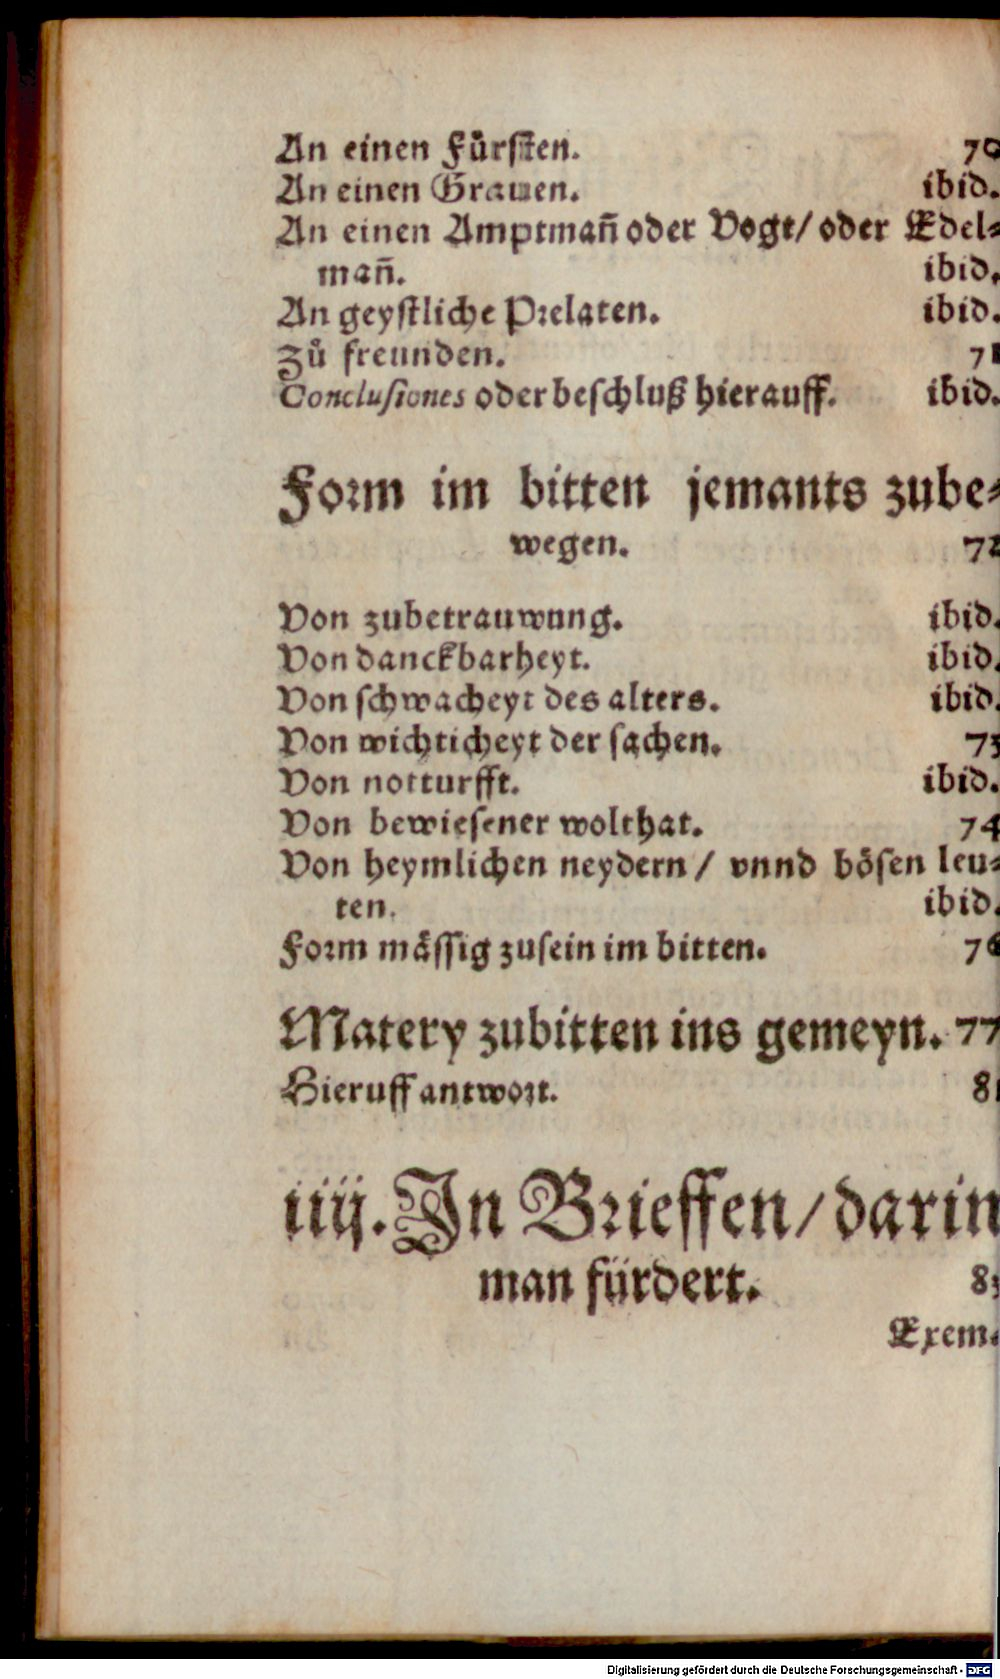 An einen Fürsten. 70
An einen Grauen. ibid.
An einen Amptmañ oder Vogt/ oder Edel⸗
mañ. ibid.
An geystliche Prelaten. ibid.
Zů freunden. 71
Conclusiones oder beschluß hierauff. ibid.
Form im bitten jemants zube⸗
wegen. 72
Von zubetrauwung. ibid.
Von danckbarheyt. ibid.
Von schwacheyt des alters. ibid.
Von wichticheyt der sachen. 73
Von notturfft. ibid.
Von bewiesener wolthat. 74
Von heymlichen neydern / vnnd bösen leu⸗
ten. ibid.
Form mässig zusein im bitten. 76
Matery zubitten ins gemeyn. 77
Hieruff antwort. 81
iiij. In Brieffen / darin
man fürdert.
Exem⸗
Digitalisierung gefördert durch die Deutsche Forschungsgemeinschaft - DFG